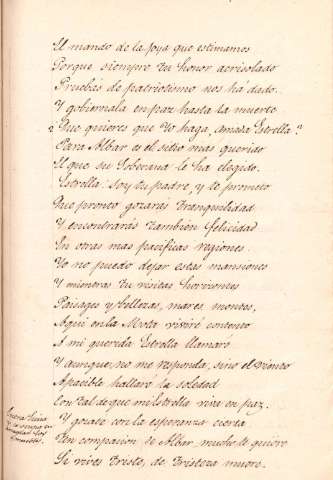 El mando de la joya que estimamos
Porque siempre tu honor acrisolado
Pruebas de patriotismo nos ha dado.
Y gobiernala en paz hasta la muerte
Que quieres que Yo haga, amada Estrella?
Para Albar es el sitio mas querido
El que su Soberana le ha elegido.
Estrella: soy tu padre, y te prometo
Que pronto gozarás tranquilidad
Y encontrarás también felicidad
En otras mas pacíficas regiones.
Yo no puedo dejar estas mansiones
Y mientras tu visitas horizones
Paisages y bellezas, mares, montes,
Aqui en la Mota viviré contento
A mi querida Estrella llamaré
Y aunque, no me responda, sino el viento
Apacible hallaré la soledad
Con tal de que mi Estrella vive en paz.
Y gozate con la esperanza cierta
Un compasion de Albar, mucho te quiere
Si vives triste, de tristeza muere.